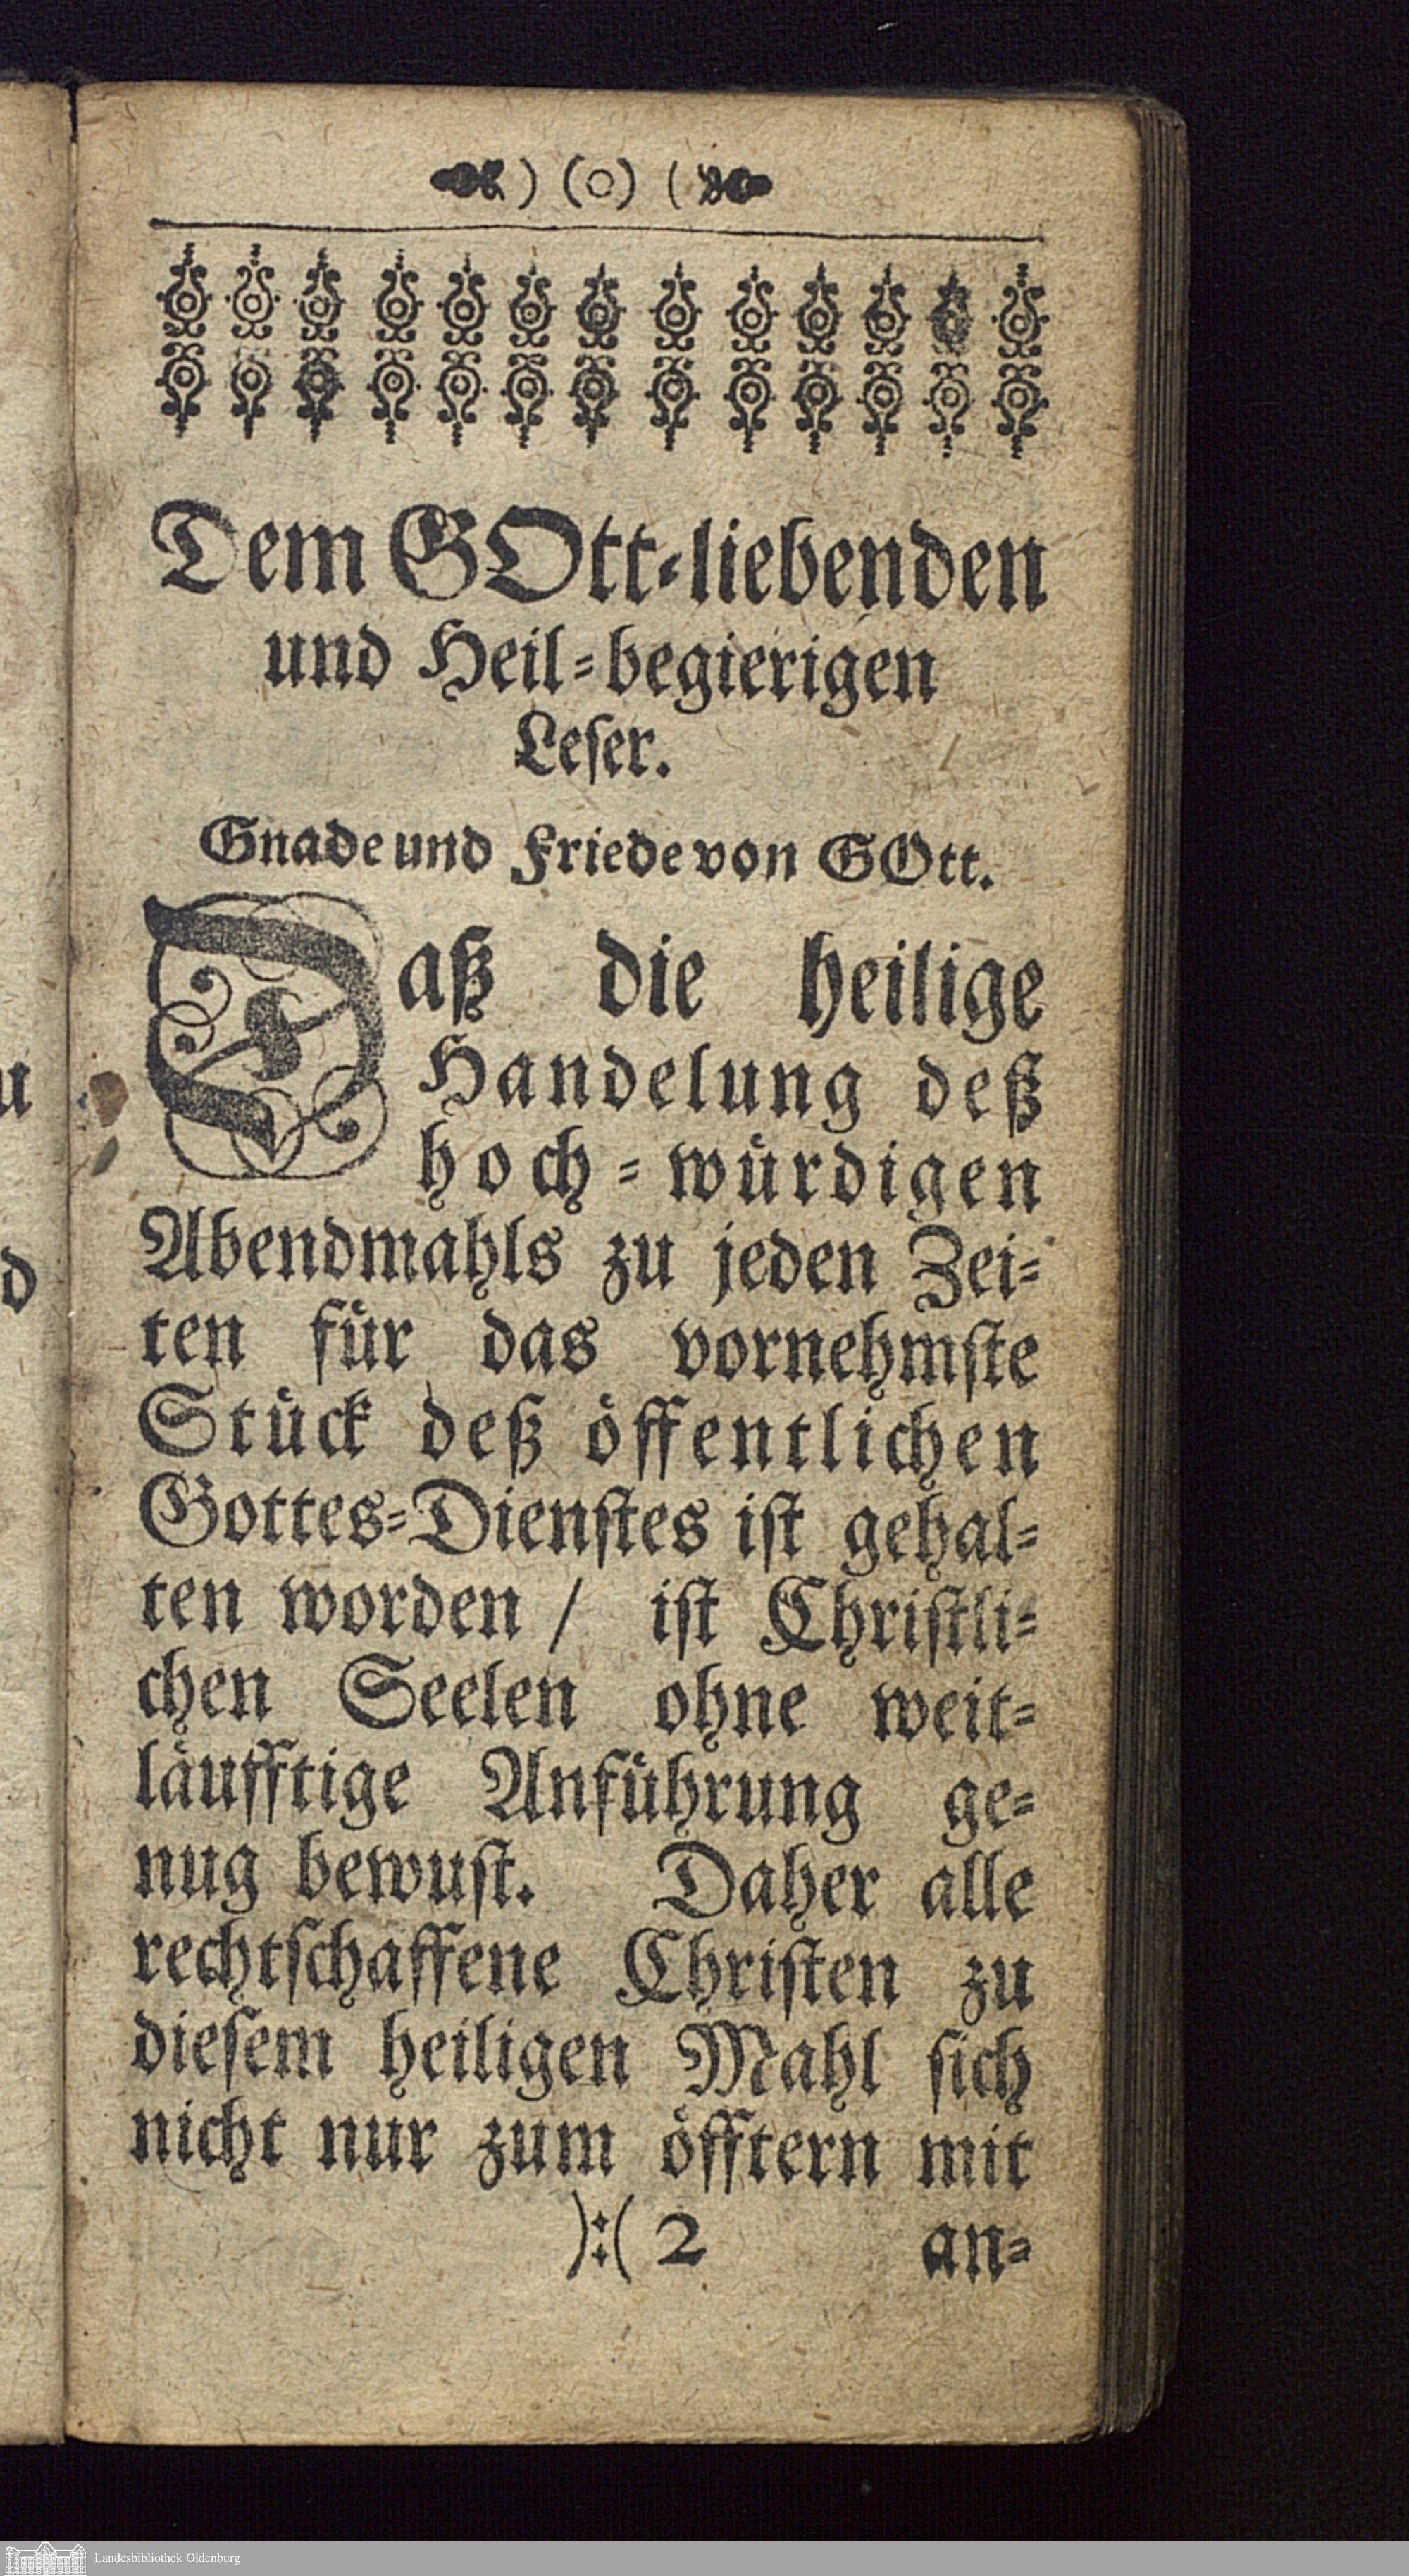 ) (o) (
Dem GOtt-liebenden
und Heil-begierigen
Leſer.
Gnade und Friede von GOtt.
Daß die heilige
Handelung deß
hoch-wuͤrdigen
Abendmahls zu jeden Zei-
ten fuͤr das vornehmſte
Stuͤck deß oͤffentlichen
Gottes-Dienſtes iſt gehal-
ten worden / iſt Chriſtli-
chen Seelen ohne weit-
laͤufftige Anfuͤhrung ge-
nug bewuſt. Daher alle
rechtſchaffene Chriſten zu
dieſem heiligen Mahl ſich
nicht nur zum oͤfftern mit
):( 2 an-
u
d
Landesbibliothek Oldenburg